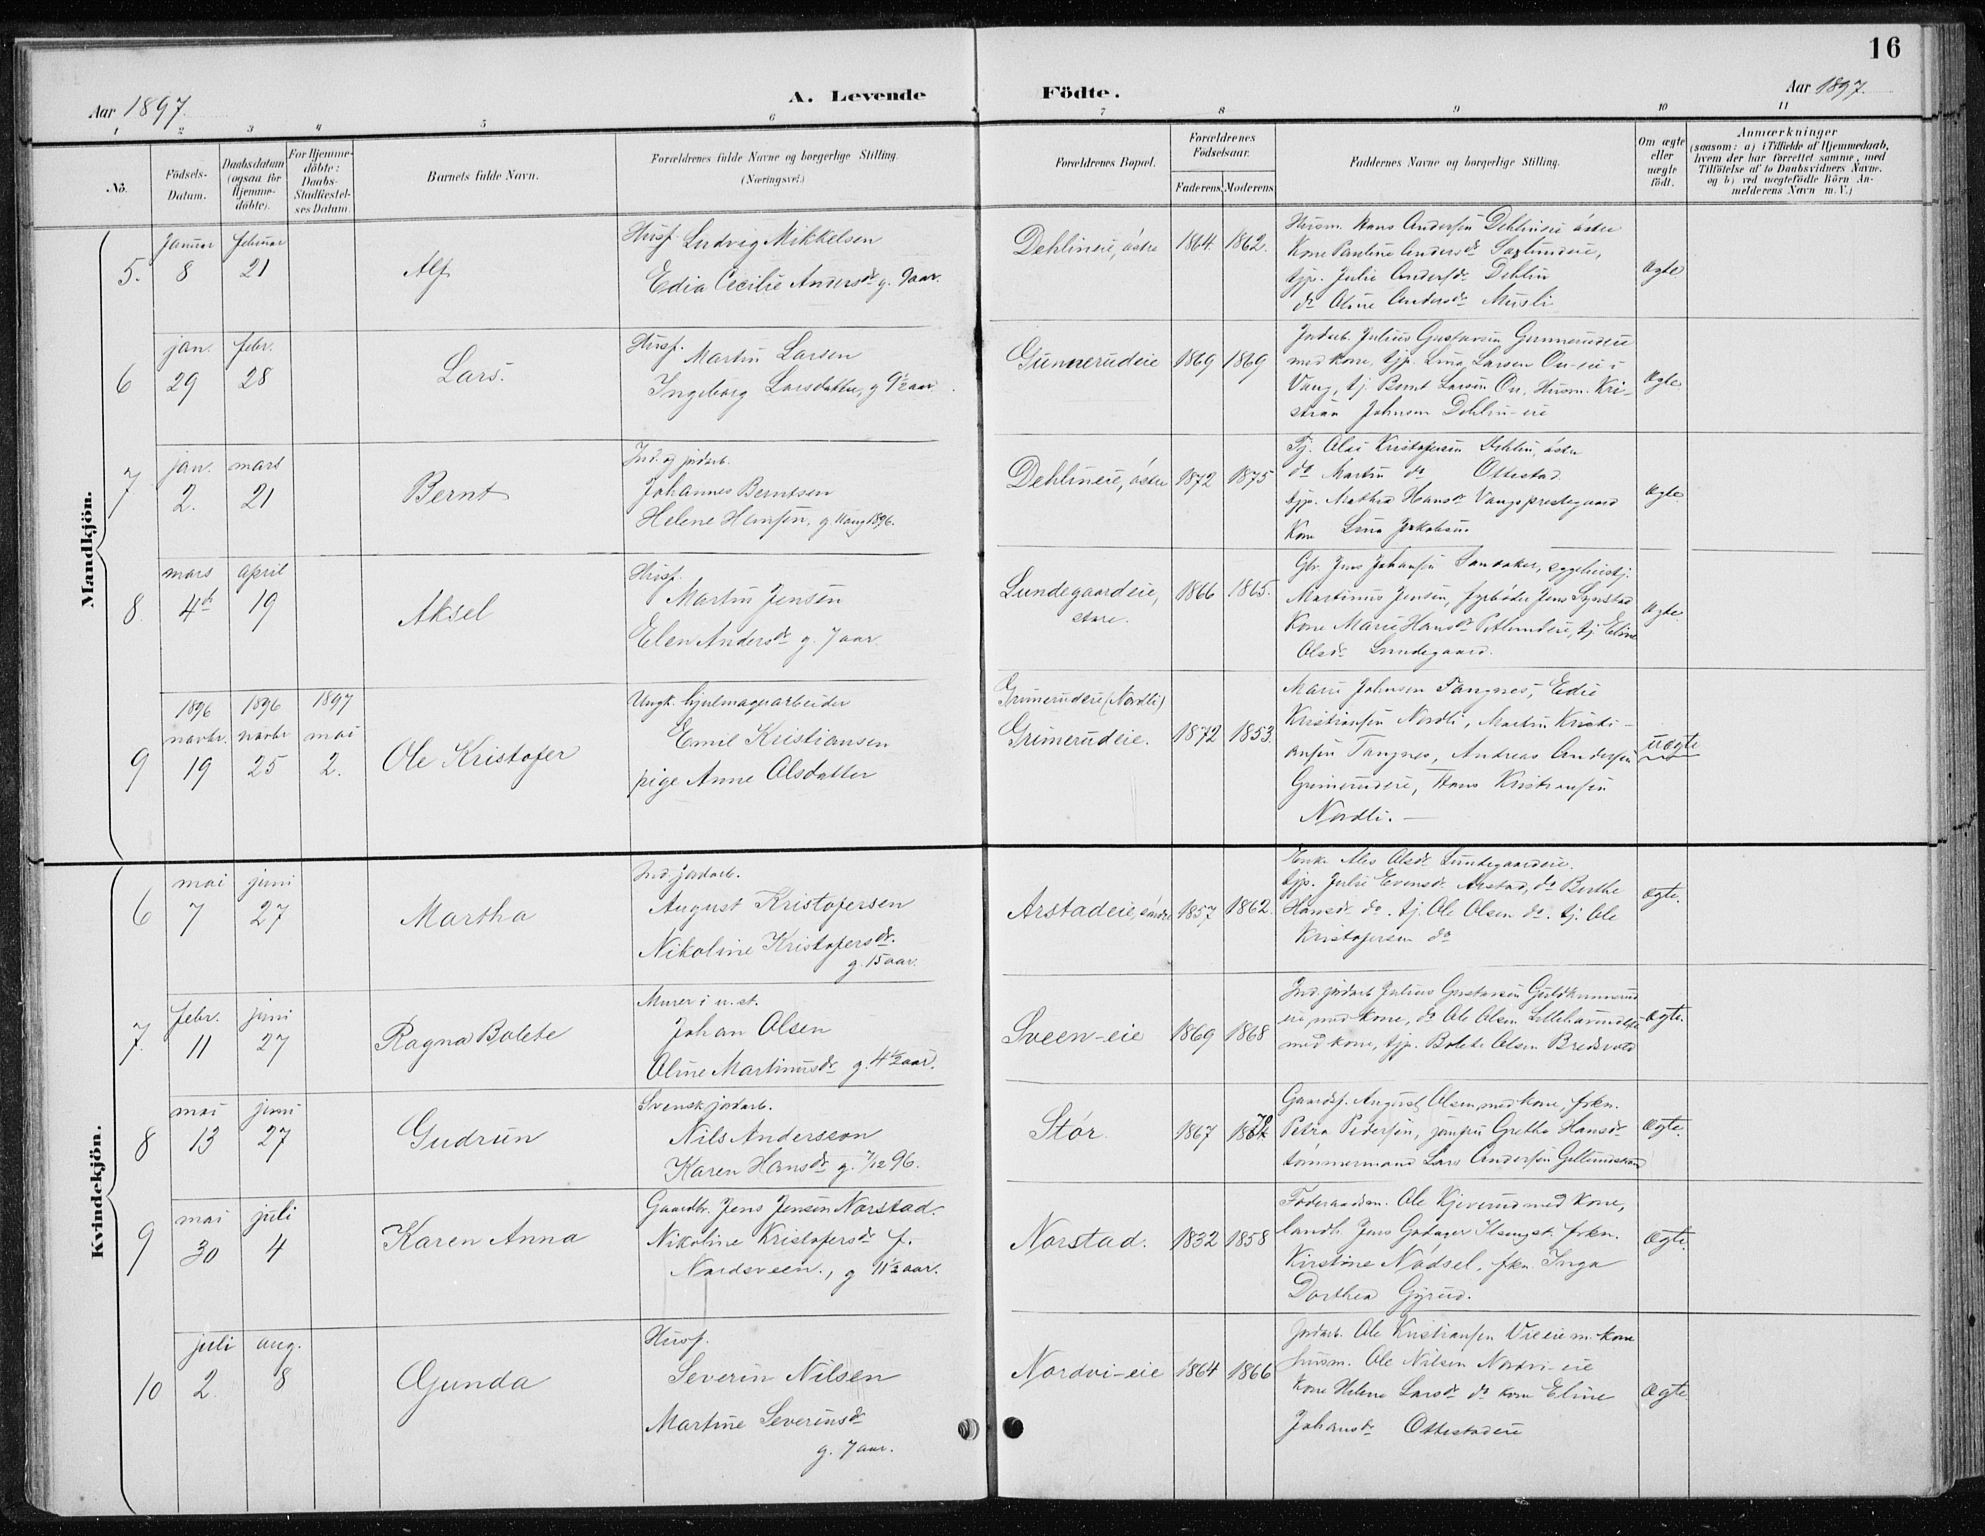 16
Aar 1897.
A. Levende Födte.
Aar 1897.
1 2 3 4 5 6 7 8 9 10 11
No.
Födsels-Datum.
Daabsdatum (ogsaa for Hjemme-döbte).
For Hjemme-döbte: Daabs-Stadfæstel-ses Datum.
Barnets fulde Navn.
Forældrenes fulde Navne og borgerlige Stilling. (Næringsvei.)
Forældrenes Bopæl.
Forældrenes Födselsaar.
Faderens. Moderens.
Faddernes Navne og borgerlige Stilling.
Om ægte eller uægte födt.
Anmærkninger (saasom: a) i Tilfælde af Hjemmedaab, hvem der har forrettet samme, med Tilföielse af to Daabsvidners Navne, og b) ved uægtefödte Börn Anmelderens Navn m. V.)
Mandkjön.
5. Januar 8 februar 21
Alf
Husf. Ludvig Mikkelsen
Edia Cecilie Andersdr g. 9 aar.
Dehlineie, östre 1864. 1862.
Husm. Hans Andersen Dehlineie östre
Kone Pauline Andersdr
tjp. Julie Andersdr Dehlin
do Oline Andersdr
ægte
6 jan. 29 febr. 28
Lars.
Husf. Martin Larsen
Ingeborg Larsdatter, g 9½ aar.
Gunnerudeie 1869 1869
Jordarb. Julius Gustavsen Gunnerudeie
med kone, tjp. Lina Larsen On-eie i
Vang, tj. Bernt Larsen On, Husm. Kri-
stian Johnsen Dehlin-eie
ægte
7 jan. 2. mars 21
Bernt
Ind. og jordarb.
Johannes Berntsen
Helene Hansen, g. 1896.
Dehlineie, östre 1872 1875
Tj. Olai Kristofersen Dehlin, östre
do Martin do Ottestad
tjp. Mathea Hansdr Vangs prestegaard
Kone Lina Jakobsen
ægte.
8. mars 4de april 19
Aksel
Husf. Martin Jensen
Elen Andersdr g. 7 aar.
Lundegaardeie, store. 1866 1865.
Gbr. Jens Johansen Sandaker,
Martinus Jensen, fyrböder Jens Synstad
Kone Marie Hansdr tj. Eline
Olsdr Lundegaard.
ægte.
9 1896 novbr. 19 1896 novbr 25 1897 mai 2.
Ole Kristofer
Ungk. hjulmagerarbeider
Emil Kristiansen
pige Anne Olsdatter
Grimerudeie (Nordli)
Grimerudeie. 1872 1853.
Marie Johnsen Tangnes, Edie
Kristiansen Nordli, Martin Kristi-
ansen Tangnes, Andreas Andersen
Grimerudeie, Hans Kristiansen
Nordli. —
uægte
Kvindekjön.
6 mai 7 juni 27
Martha
Ind. jordarb.
August Kristofersen
Nikoline Kristofersdr.
g. 15 aar.
Arstadeie, söndre 1857 1862.
Enke Olsdr Lundegaardeie.
tjp. Julie Evensdr Arstad, do Berthe
Hansdr do. tj. Ole Olsen do. tj. Ole
Kristofersen do
ægte.
7. febr. 11 juni 27
Ragna Bolete
Murer i u. st.
Johan Olsen
Oline Martinusdr g. 4½ aar.
Sveen-eie 1869 1868
Ind. jordarb Julius Gustavsen
eie, med kone, do Ole Olsen
med kone, tjp. Bolete Olsen Bredvold
ægte.
8 mai 13 juni 27
Gudrun
Svensk jordarb.
Nils Andersson
Karen Hansdr g. 7/12 96.
Stör. 1867
Gaardsf. August Olsen med kone, frkn.
Petra Pedersen, jomfru Grethe Hansdr
tømmermand Lars Andersen
ægte.
9 mai 30 juli 4
Karen Anna
Gaardbr. Jens Jensen Norstad.
Nikoline Kristofersdr f.
Nordsveen., g 11½ aar.
Norstad. 1832 1858
Föderaadsm. Ole Kjeverud med kone,
landh. Jens Godager Ilseng st. frkn.
Kirstine Nödsel, frkn. Inga
Dorthea Gyrud.
ægte.
10 juli 2. aug. 8
Gunda
Husf.
Severin Nilsen
Martine Severinsdr
g. 7 aar.
Nordvi-eie 1864 1866
Jordarb. Ole Kristiansen m. kone
husm. Ole Nilsen Nordvi-eie
kone Helene Larsdr do kone Eline
Johansdr Ottestadeie
ægte.